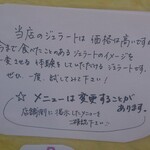 当店のジェラートは価格は高いですが
今まで食べたことのあるジェラートのイメージを
一変させる体験をしていただけるジェラートです。
ぜひ、一度、試してみて下さい!
☆ メニューは変更することが
あります。
店舗側に掲示したメニューを
ご確認下さい